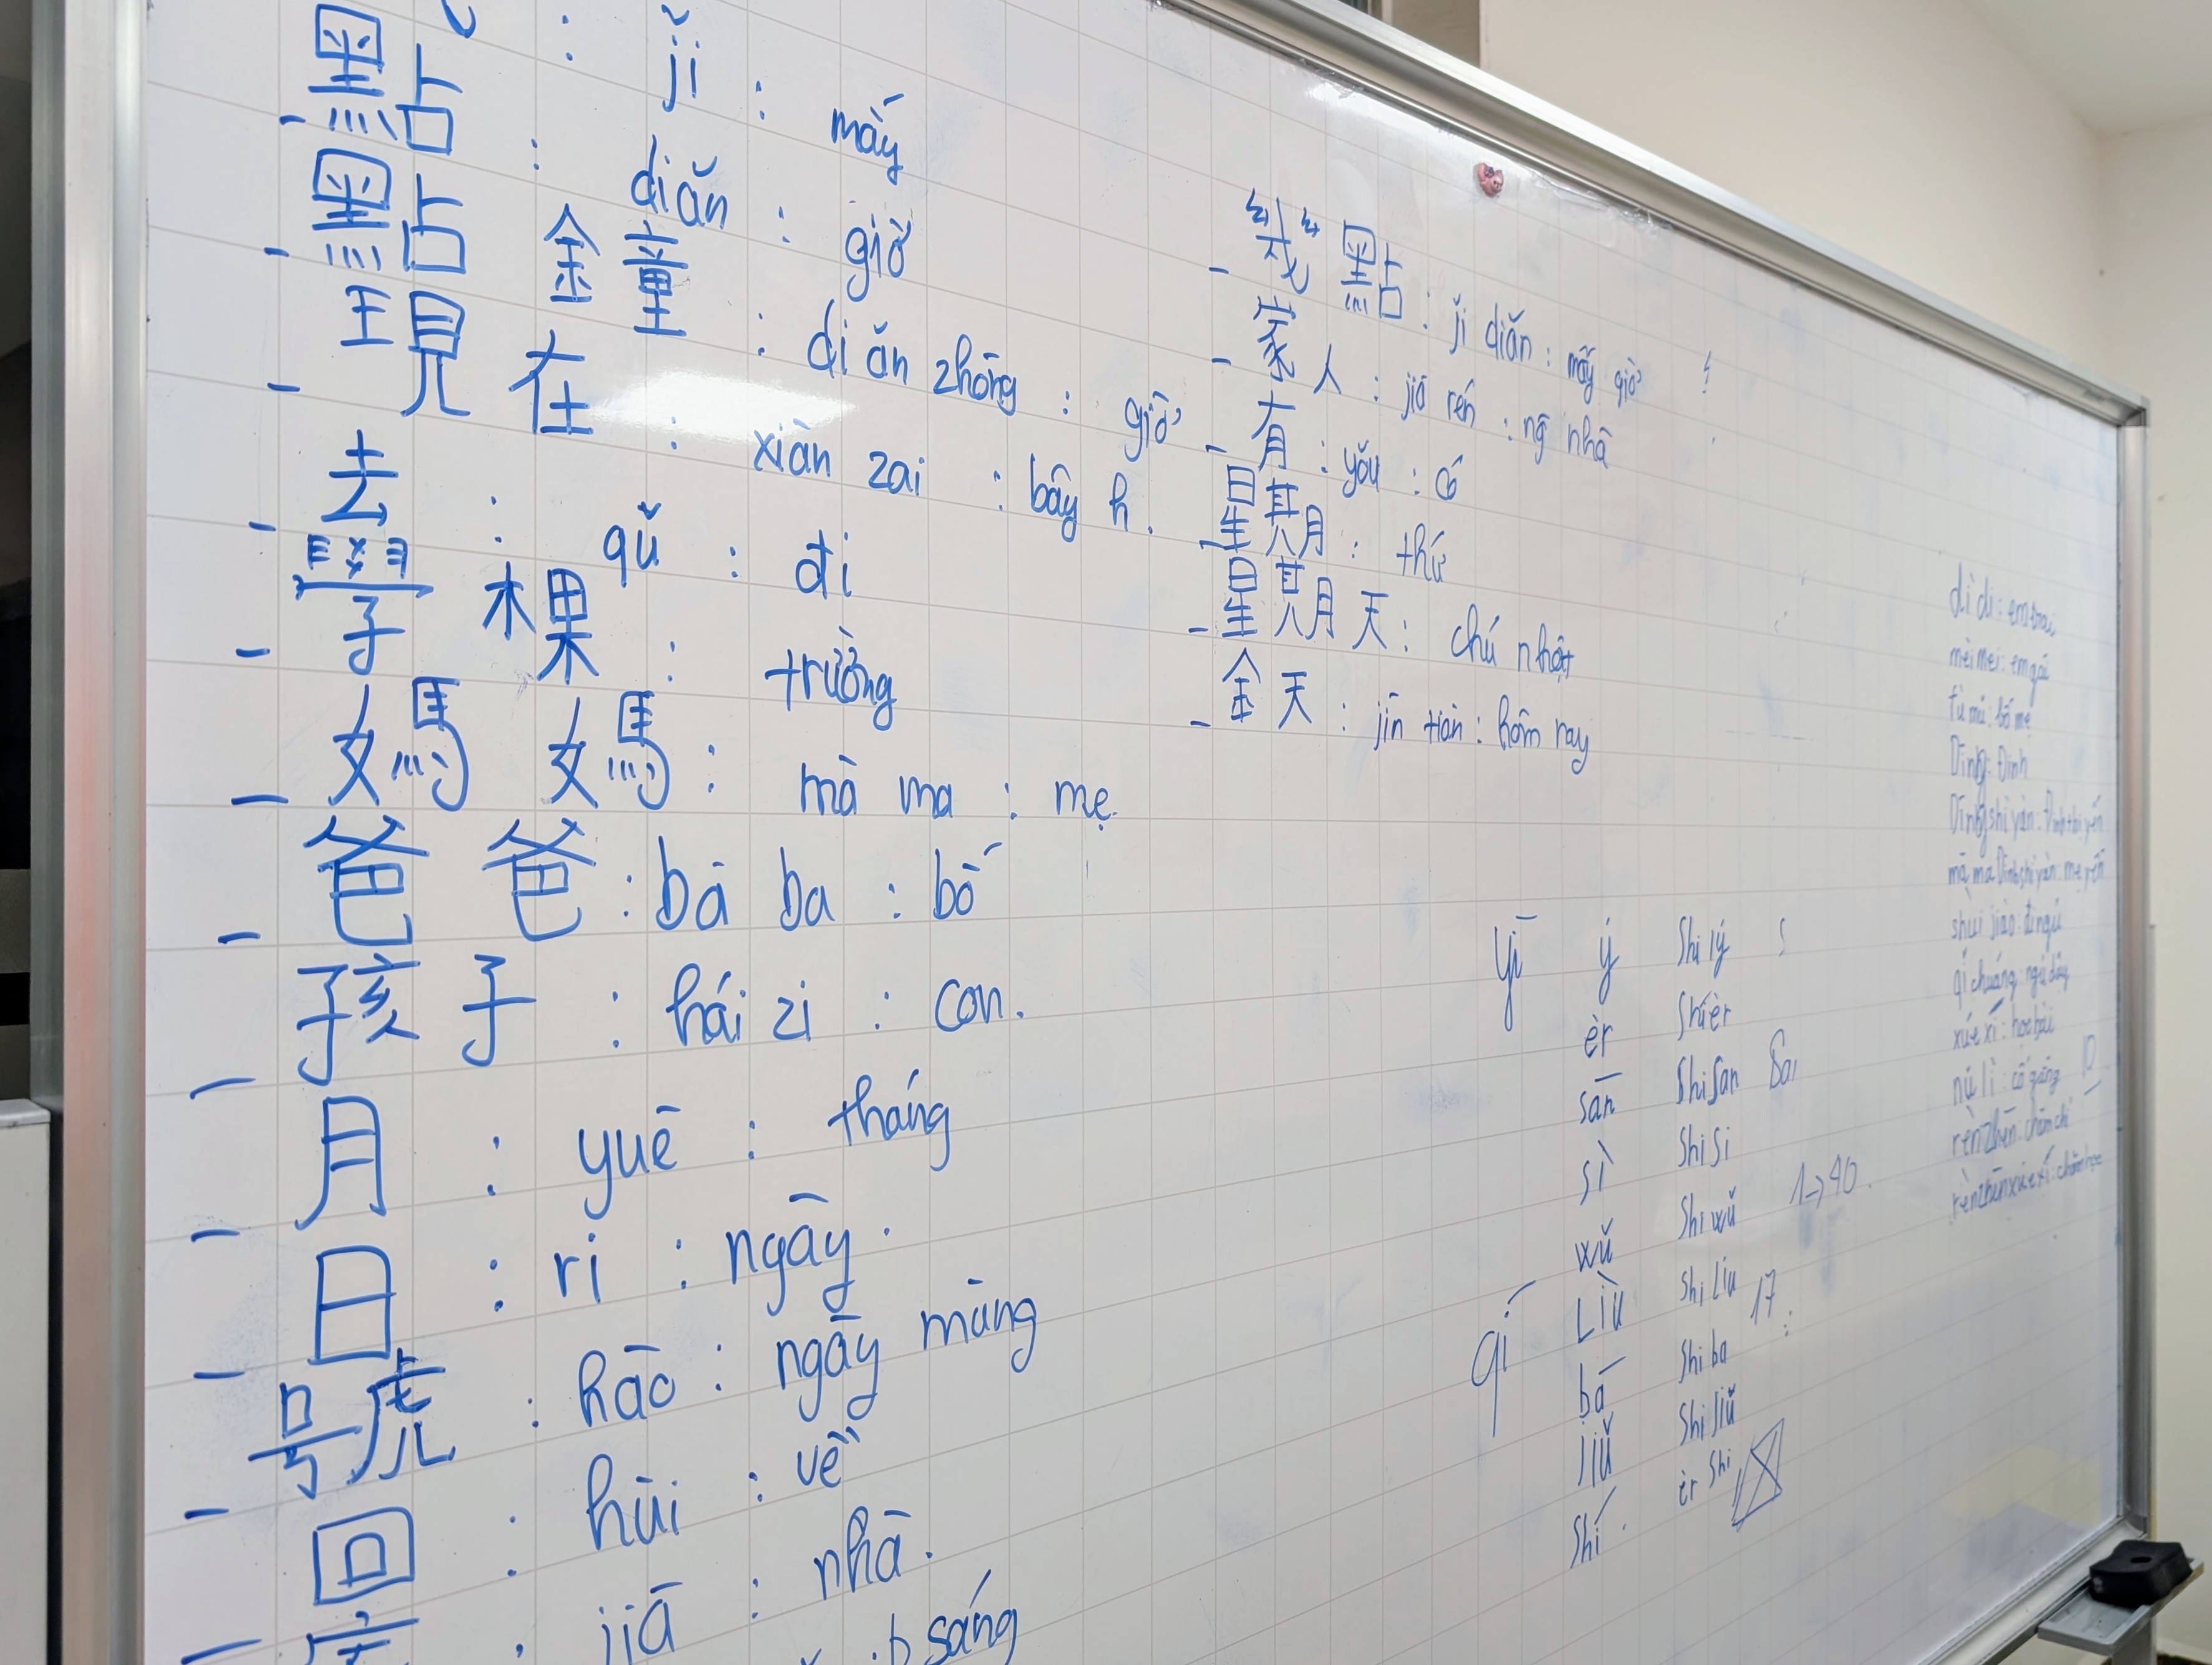 : jǐ : mấy
- 點 : diǎn : giờ
- 點 鐘 : diǎn zhōng : giờ
- 現 在 : xiàn zai : bây h.
- 去 : qǔ : đi
- 學 棵 : trường
- 媽 媽 : mà ma : mẹ.
- 爸 爸 : bā ba : bố
- 孩 子 : hái zi : con.
- 月 : yuē : tháng
- 日 : ri : ngày.
- 號 : hāo : ngày mùng
- 回 : hùi : về
: jiā : nhà.
sáng
- 幾 點 : ji diǎn : mấy giờ
- 家 人 : jiā rén : ng nhà
- 有 : yǒu : có
- 星期 : thứ
- 星期 天 : chủ nhật
- 金 天 : jīn tiān : hôm nay
yī ý shi lý s
èr shí èr
sān shi san
sì shi si
wǔ shi wǔ 1→40.
Lìu shi liu 17
qī
bā shi ba
jiǔ shi jiǔ
shí. èr shi
dì di : em trai
mèi mei : em gái
fù mǔ : bố mẹ
Dīng : Đinh
Dīng shi yàn : Đinh thị yến
mā ma Dīng shi yàn : mẹ yến
shùi jiào : đi ngủ
qǐ chuáng : ngủ dậy
xué xí : học bài
nǔ lì : cố gắng 10
rèn zhēn : chăm chỉ
rèn zhēn xué xí : chăm học